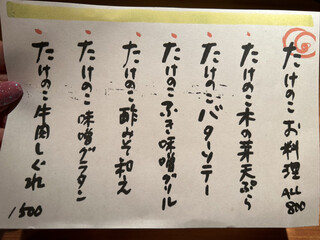 たけのこ お料理 ALL 800
たけのこ木の芽天ぷら
たけのこ バターソテー
たけのこ ふき味噌グリル
たけのこ 酢みそ和え
たけのこ 味噌グラタン
たけのこ 牛肉しぐれ 1500